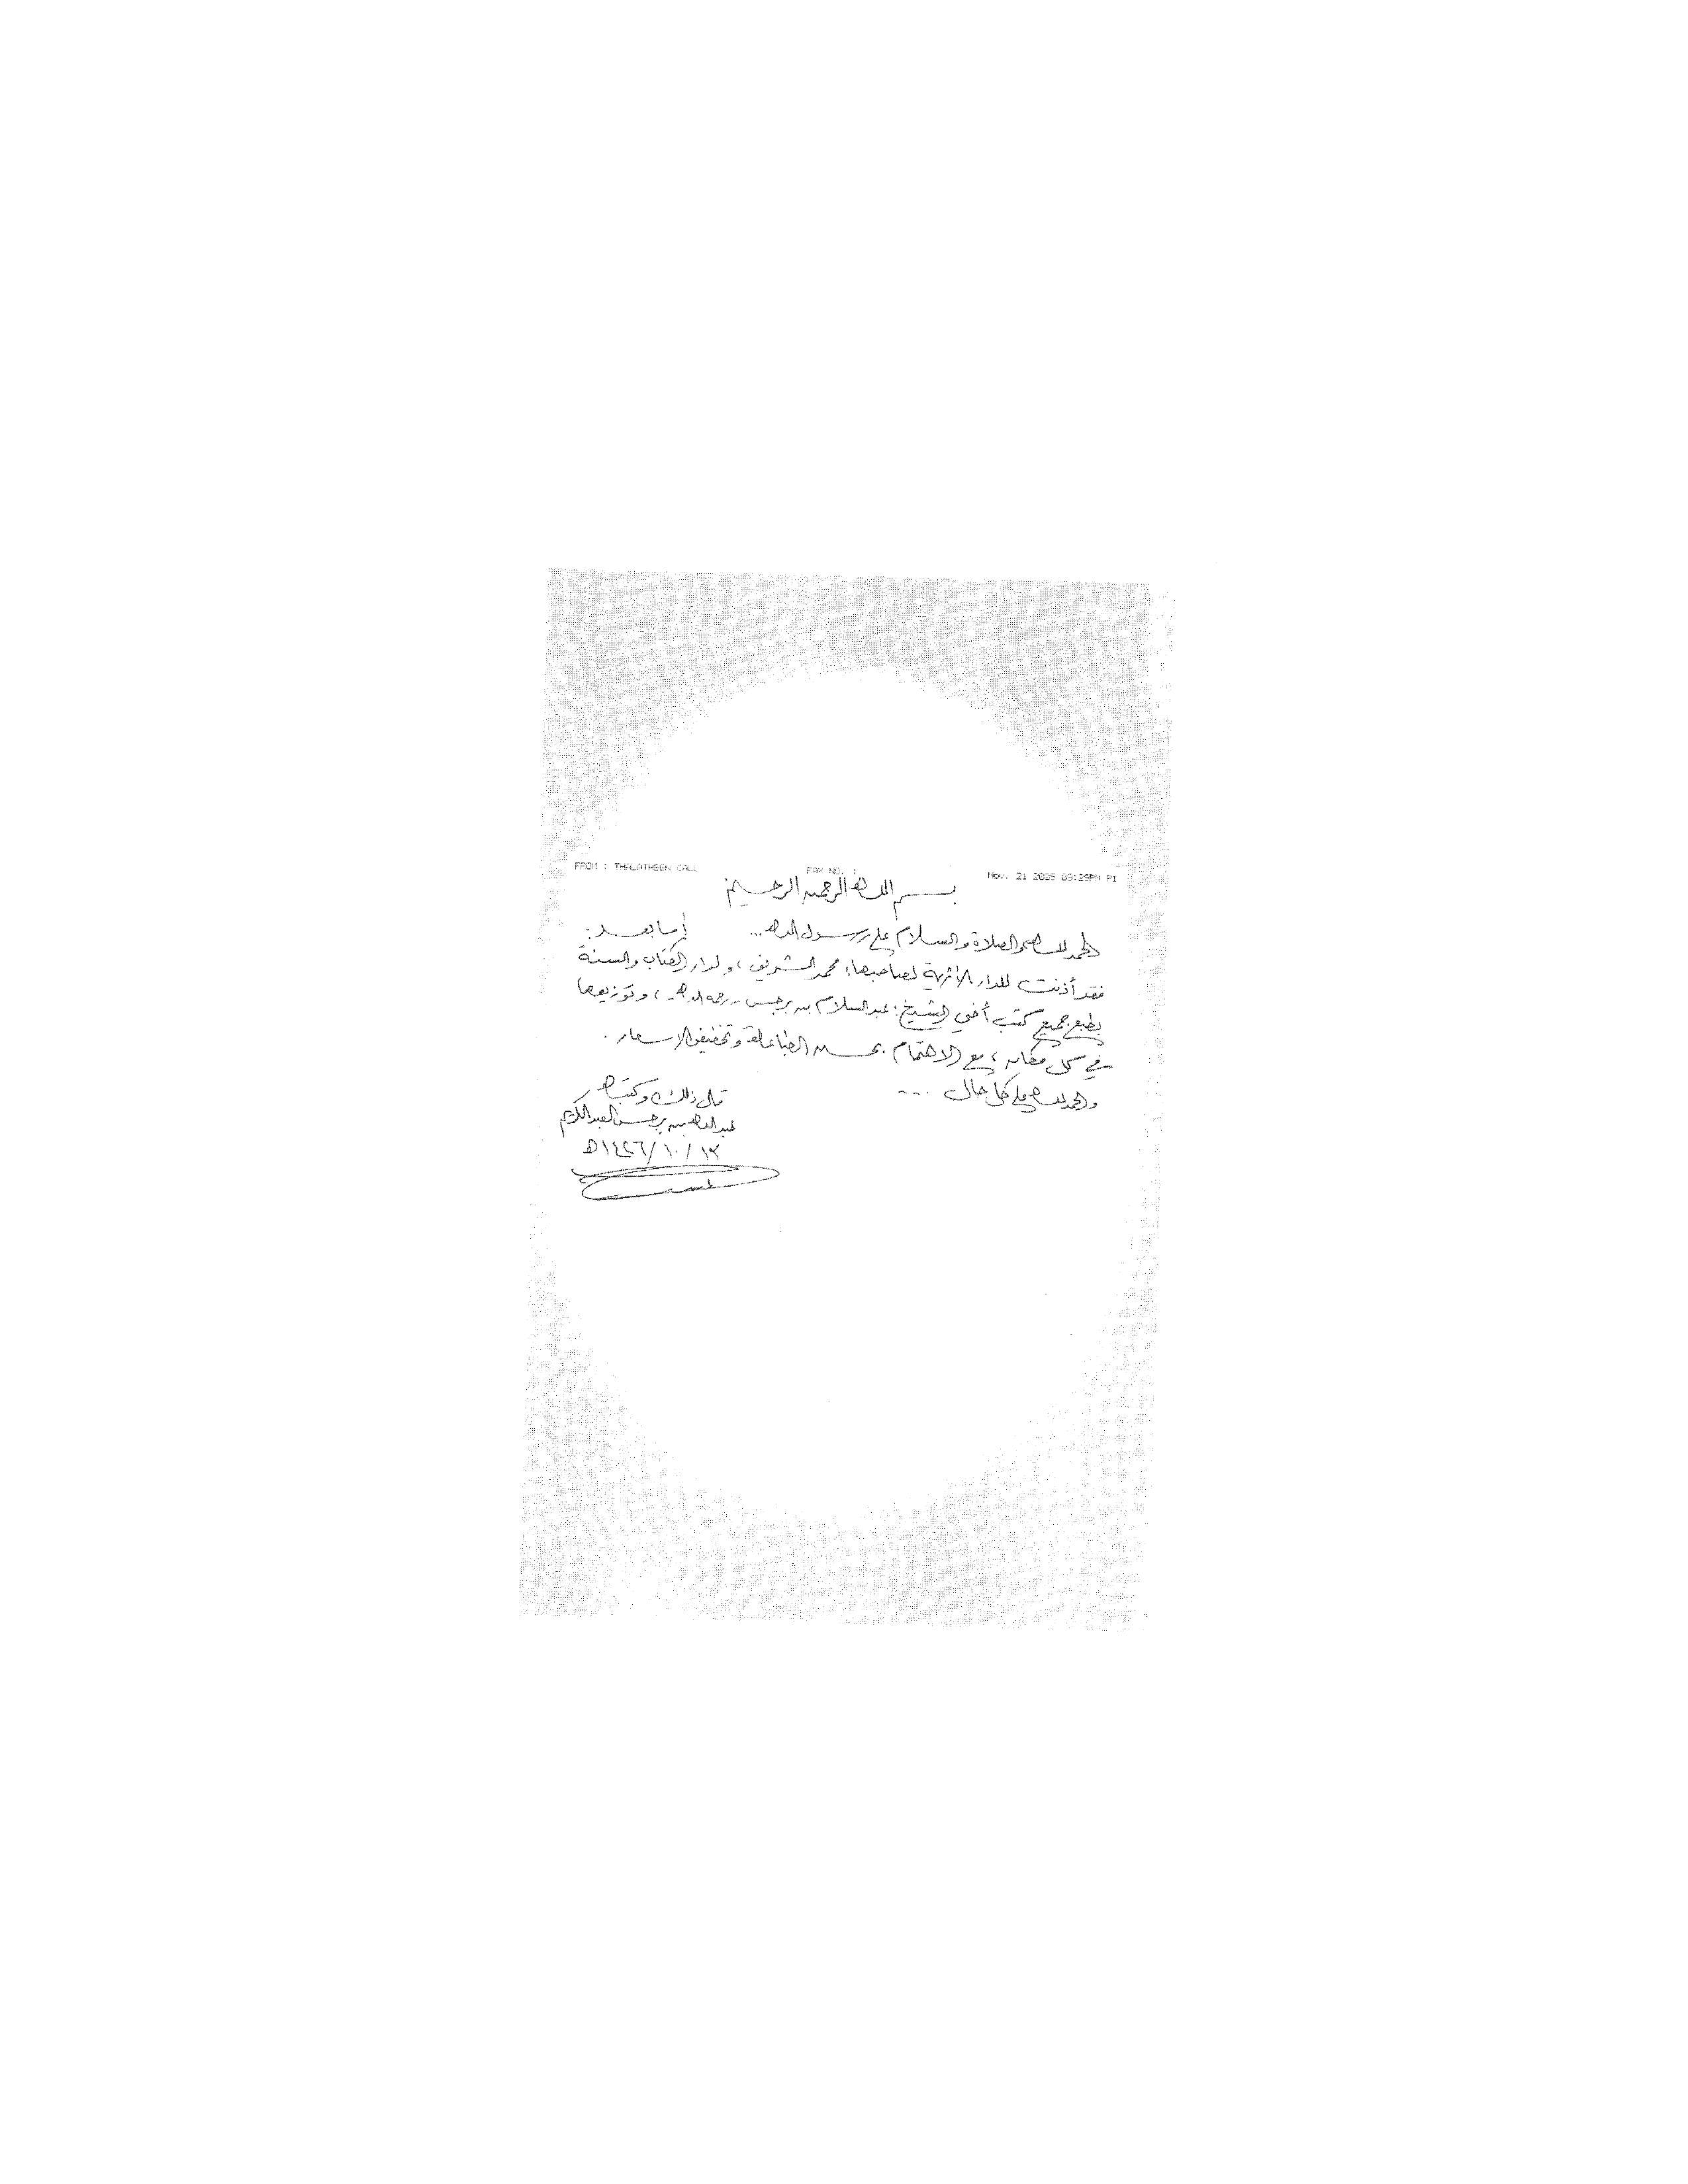 FROM : THALATHEEN CALL FAX NO. : Nov. 21 2005 03:29PM P1
بسم الله الرحمن الرحيم
الحمد لله والصلاة والسلام على رسول الله... أما بعد:
فقد أذنت للدار الأثرية لصاحبها: محمد الشريف، ولدار الكتاب والسنة
بطبع جميع كتب أخي الشيخ: عبدالسلام بن برجس - رحمه الله -، وتوزيعها
في كل مكان، مع الاهتمام بحسن الطباعة وتخفيض الاسعار.
والحمد لله على كل حال ...
قال ذلك وكتبه
عبدالله بن برجس العبدالكريم
١٤٢٦/١٠/ هـ